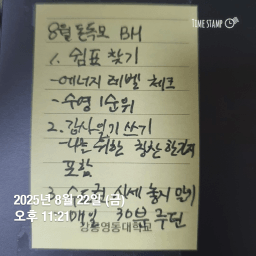 TIME STAMP
8월 돈독모 BH
1. 쉼표 찾기
-에너지 레벨 체크
-수영 1순위
2. 감사일기 쓰기
-나를 위한 칭찬 한가지
포함
3. 수도권 시세 놓지 않기
매일 30분 루틴
2025년 8월 22일 (금)
오후 11:21
강릉영동대학교